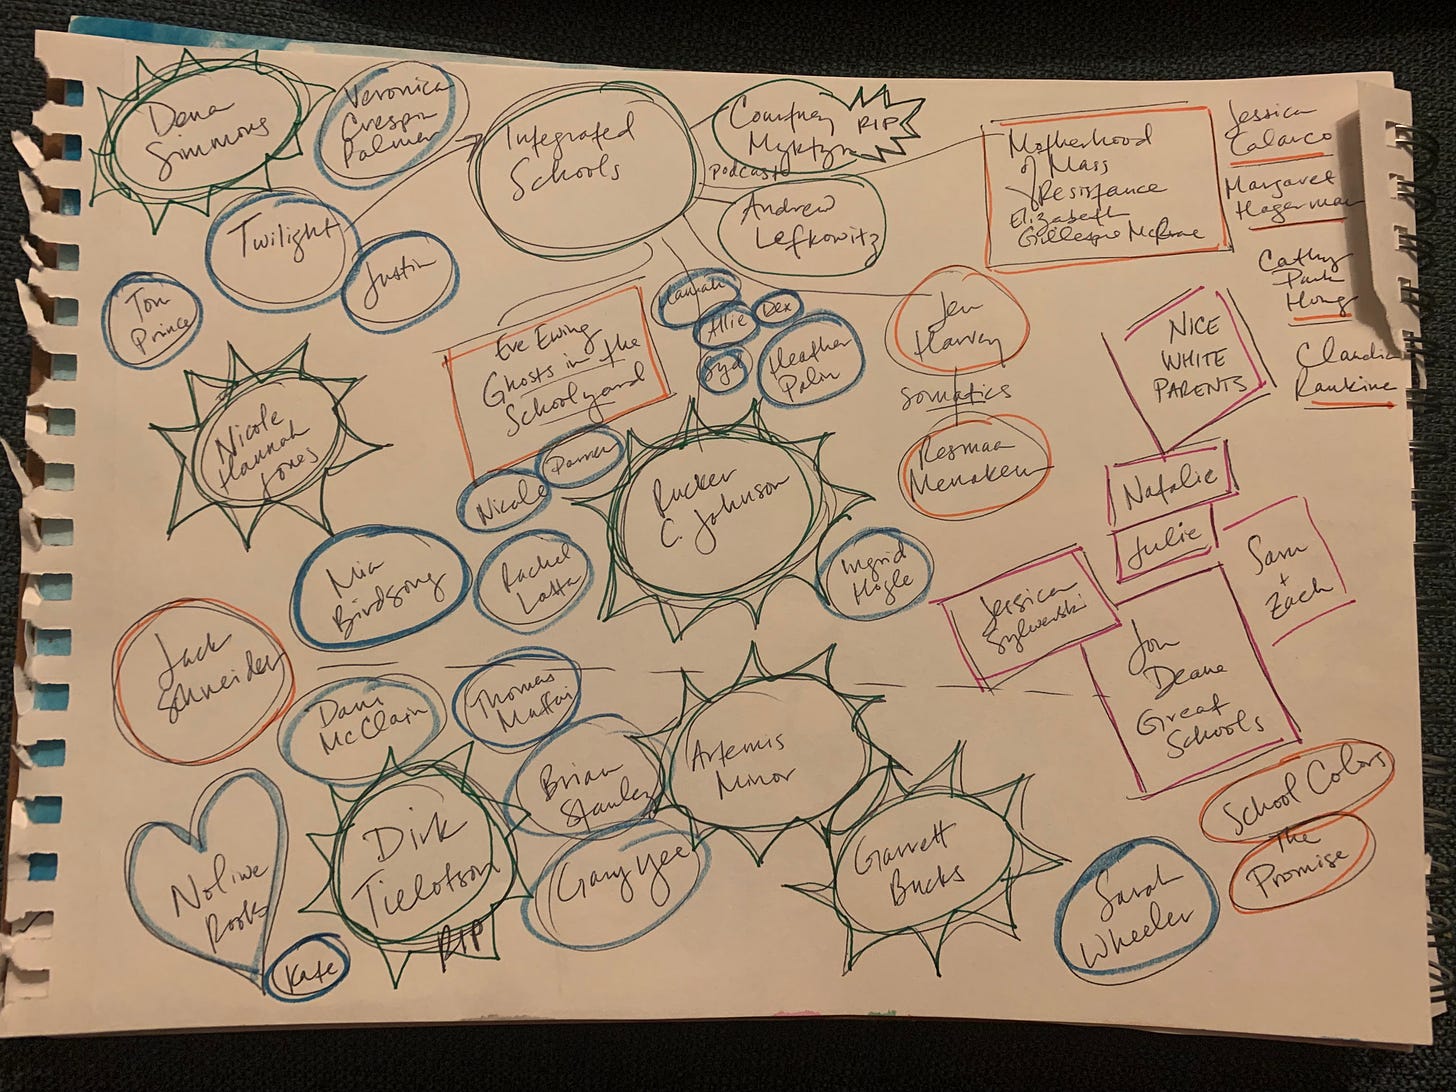 Dena
Simmons
Veronica
Crespin
Palmer
Integrated
Schools
Courtney
Mykytyn
RIP
podcast
Andrew
Lefkowitz
Motherhood
of Mass
Resistance
Elizabeth
Gillespie McRae
Jessica
Calarco
Margaret
Hagerman
Cathy
Park
Hong
Claudia
Rankine
Twilight
Justin
Tom
Prince
Eve Ewing
Ghosts in the
Schoolyard
Hannah
Allie
Dex
Syd
Heather
Palin
Jen
Harvey
Somatics
Resmaa
Menakem
NICE
WHITE
PARENTS
Natalie
Julie
Sara
+
Zach
Jessica
Jon
Deane
Great
Schools
Nicole
Hannah
Jones
Nicole
Rucker
C. Johnson
Ingrid
Hogle
Mia
Birdsong
Rachel
Latta
Jack
Schneider
Dani
McClain
Thomas
Brian
Stanley
Artemis
Minor
Noliwe
Rooks
Kate
Dirk
Tillotson
RIP
Gary Yee
Garrett
Bucks
Sarah
Wheeler
School Colors
The
Promise